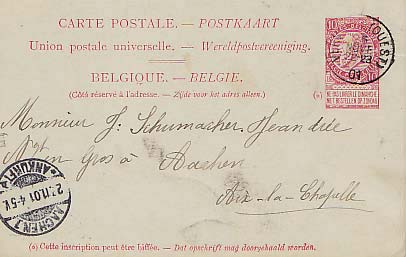 CARTE POSTALE. — POSTKAART
Union postale universelle. — Wereldpostvereeniging.
BELGIQUE. — BELGIE.
(Côté réservé à l'adresse. — Zijde voor het adres alleen.)
10 10
(OUEST)
01
NE PAS LIVRER LE DIMANCHE
NIET BESTELLEN OP ZONDAG
(*)
Monsieur J. Schumacher
en Gros à Aachen
Aix-la-Chapelle
AACHEN 1
ANKUNFT
27.11.01 4-5V.
(*) Cette inscription peut être biffée. — Dat opschrift mag doorgehaald worden.